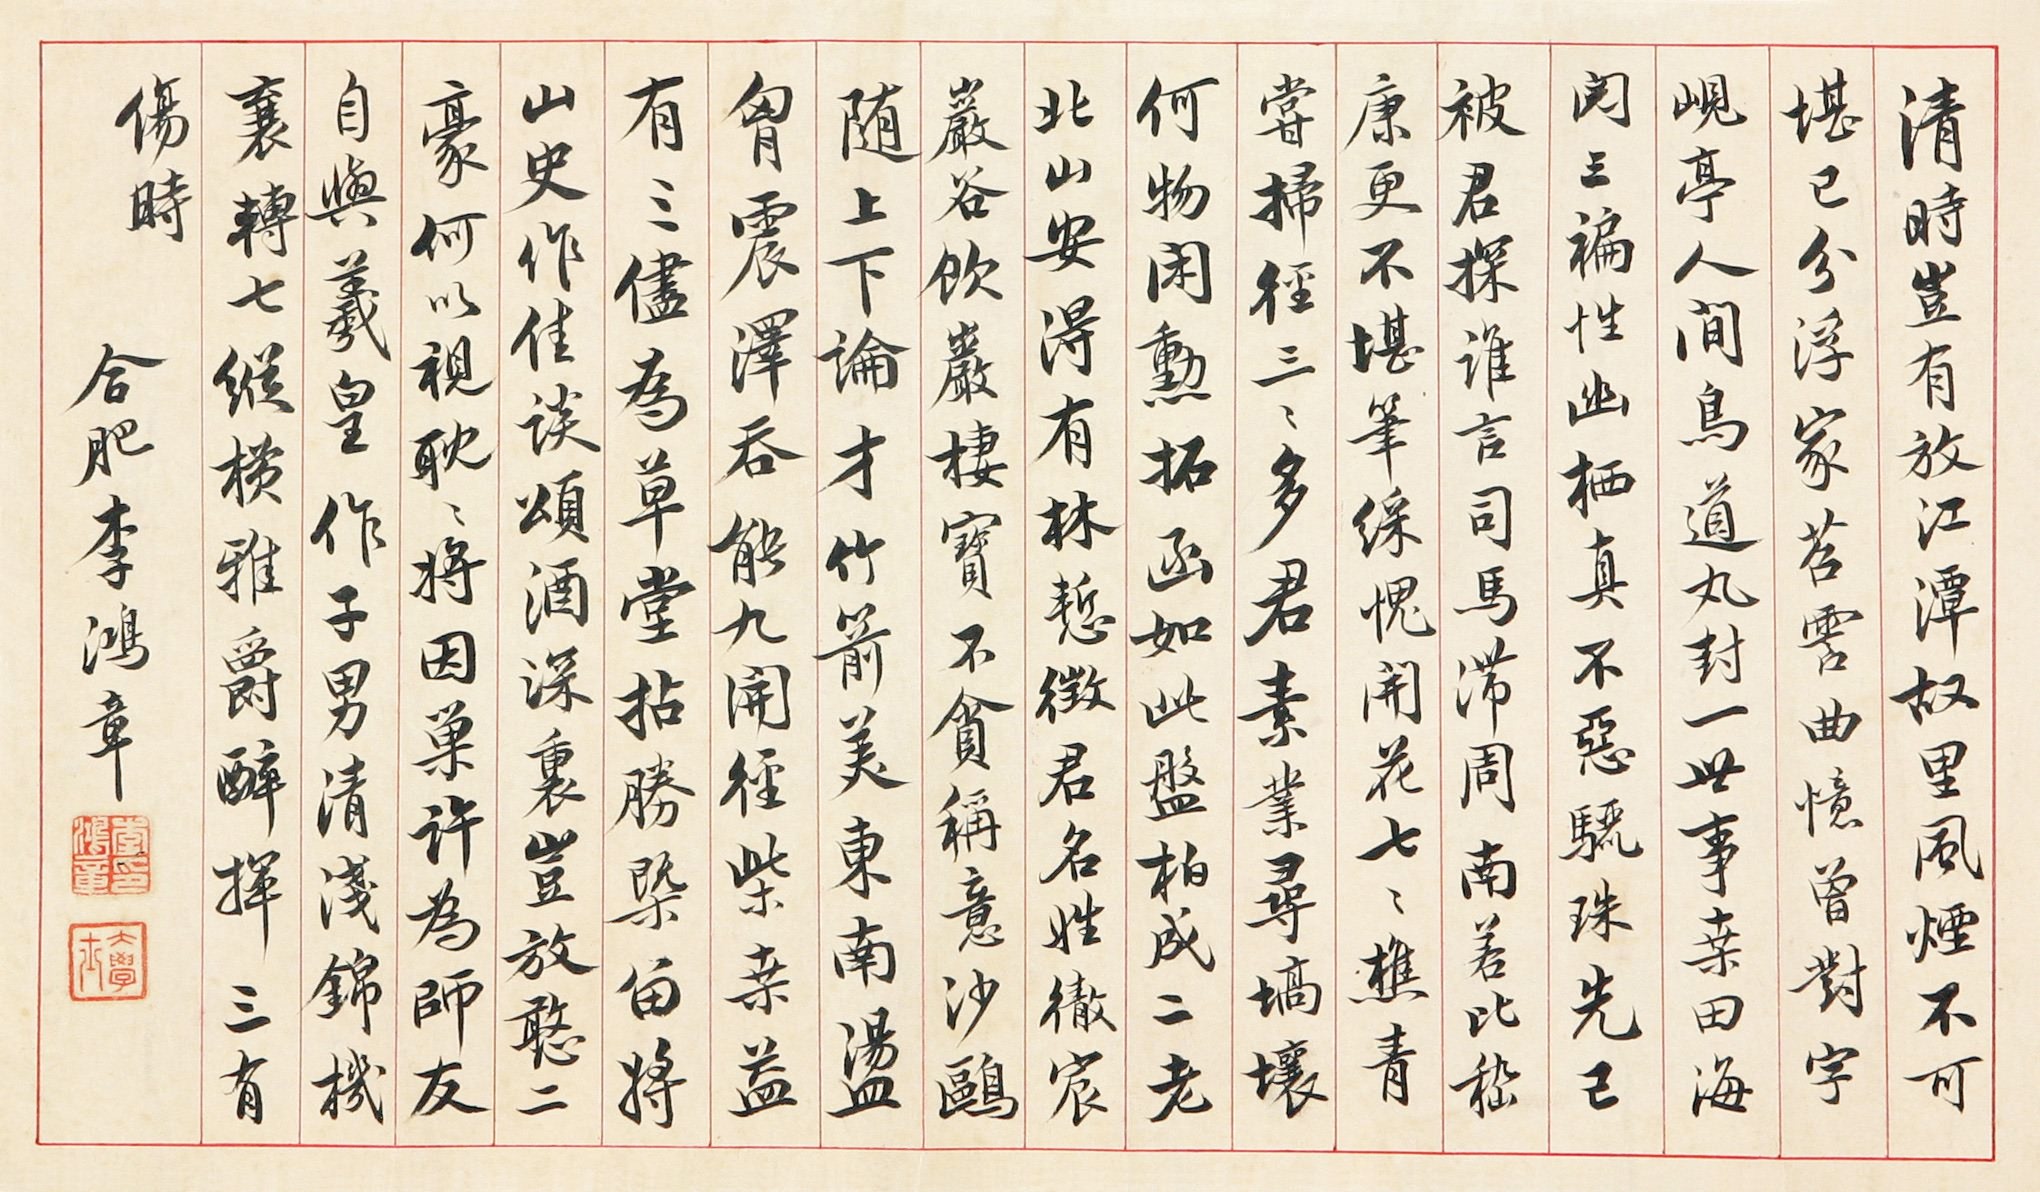 清時豈有放江潭故里風煙不可
堪已分浮家苕霅曲憶曾對宇
峴亭人間鳥道丸封一世事桒田海
閱三褊性幽栖真不惡驪珠先已
被君探誰言司馬滯周南若比嵇
康更不堪筆綵愧開花七〻樵青
嘗掃徑三〻多君素業尋墑壤
何物閑勲拓函如此盤柏成二老
北山安得有林慙徵君名姓徹宸
巖谷飲巖棲寶不貪稱意沙鷗
随上下論才竹箭美東南盪
胷震澤吞能九開徑柴桒益
有三儘為草堂拈勝槩留將
山史作佳談頌酒深裏豈放憨二
豪何以視耽〻將因巢許為師友
自與羲皇作子男清淺錦機
襄轉七縱橫雅爵醉揮三有
傷時
合肥李鴻章
李鴻章印
大學士